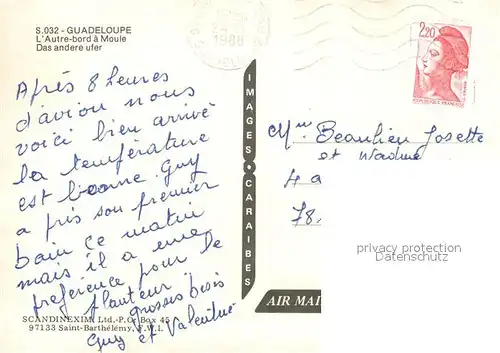 S.032 - GUADELOUPE
L'Autre-bord à Moule
Das andere ufer
1988
2,20
REPUBLIQUE FRANÇAISE
Après 8 heures
d'avion nous
voici bien arrivé
la température
est bonne Guy
a pris son premier
bain ce matin
mais il a une
preference pour le
planteur
grosses Bises
Guy et
IMAGES CARAIBES
Beaulieu Josette
et
4 a
78.
privacy protection
Datenschutz
AIR MAI
SCANDINEXIM Ltd.-P.O. Box 45
97133 Saint-Barthélémy, F.W.I.